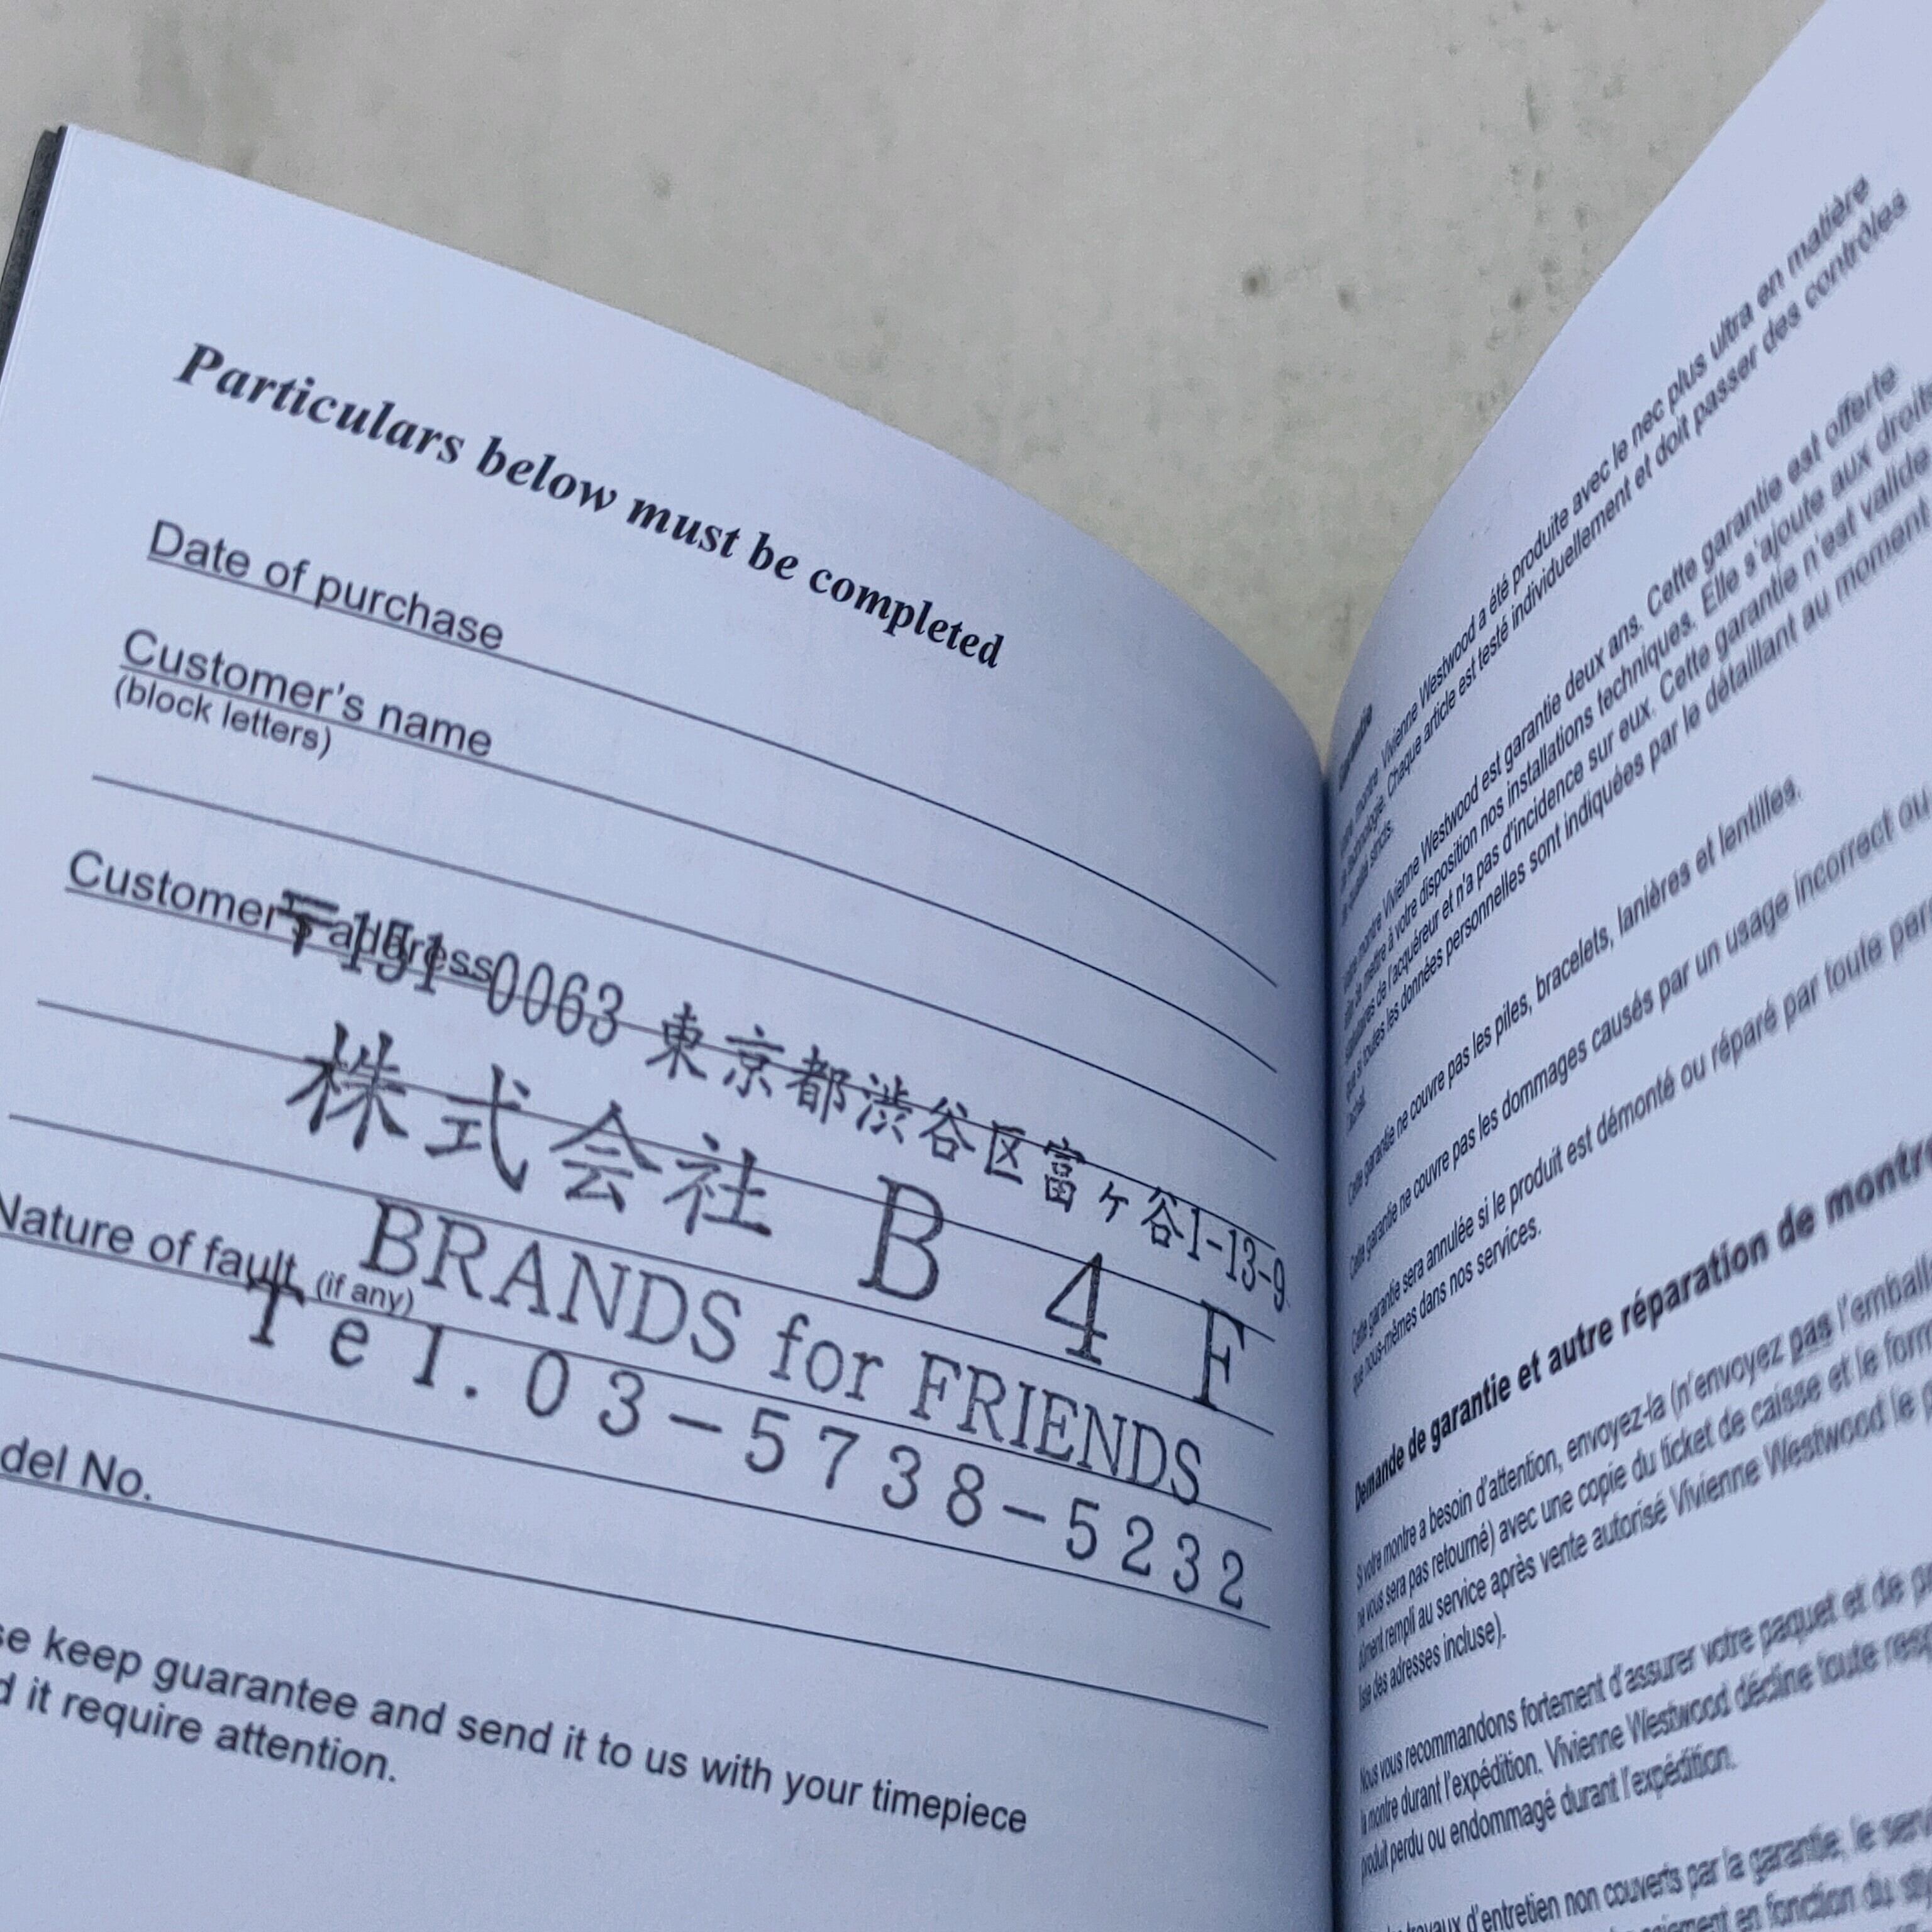 Particulars below must be completed
Date of purchase
Customer's name
(block letters)
Customer's address
〒151-0063 東京都渋谷区富ヶ谷1-13-9
株式会社 B 4 F
BRANDS for FRIENDS
Nature of fault (if any)
Tel.03-5738-5232
del No.
se keep guarantee and send it to us with your timepiece
d it require attention.
Garantie
montre Vivienne Westwood a été produite avec le nec plus ultra en matière
de technologie. Chaque article est testé individuellement et doit passer des contrôles
de qualité stricts.
Votre montre Vivienne Westwood est garantie deux ans. Cette garantie est offerte
mettre à votre disposition nos installations techniques. Elle s'ajoute aux droits
de l'acquéreur et n'a pas d'incidence sur eux. Cette garantie n'est valide
que si toutes les données personnelles sont indiquées par le détaillant au moment
l'achat.
Cette garantie ne couvre pas les piles, bracelets, lanières et lentilles.
Cette garantie ne couvre pas les dommages causés par un usage incorrect ou
Cette garantie sera annulée si le produit est démonté ou réparé par toute
que nous-mêmes dans nos services.
Demande de garantie et autre réparation de montre
Si votre montre a besoin d'attention, envoyez-la (n'envoyez pas l'emball
ne vous sera pas retourné) avec une copie du ticket de caisse et le form
dûment rempli au service après vente autorisé Vivienne Westwood le p
liste des adresses incluse).
Nous vous recommandons fortement d'assurer votre paquet et de
la montre durant l'expédition. Vivienne Westwood décline toute resp
produit perdu ou endommagé durant l'expédition.
travaux d'entretien non couverts par la garantie, le serv
en fonction du